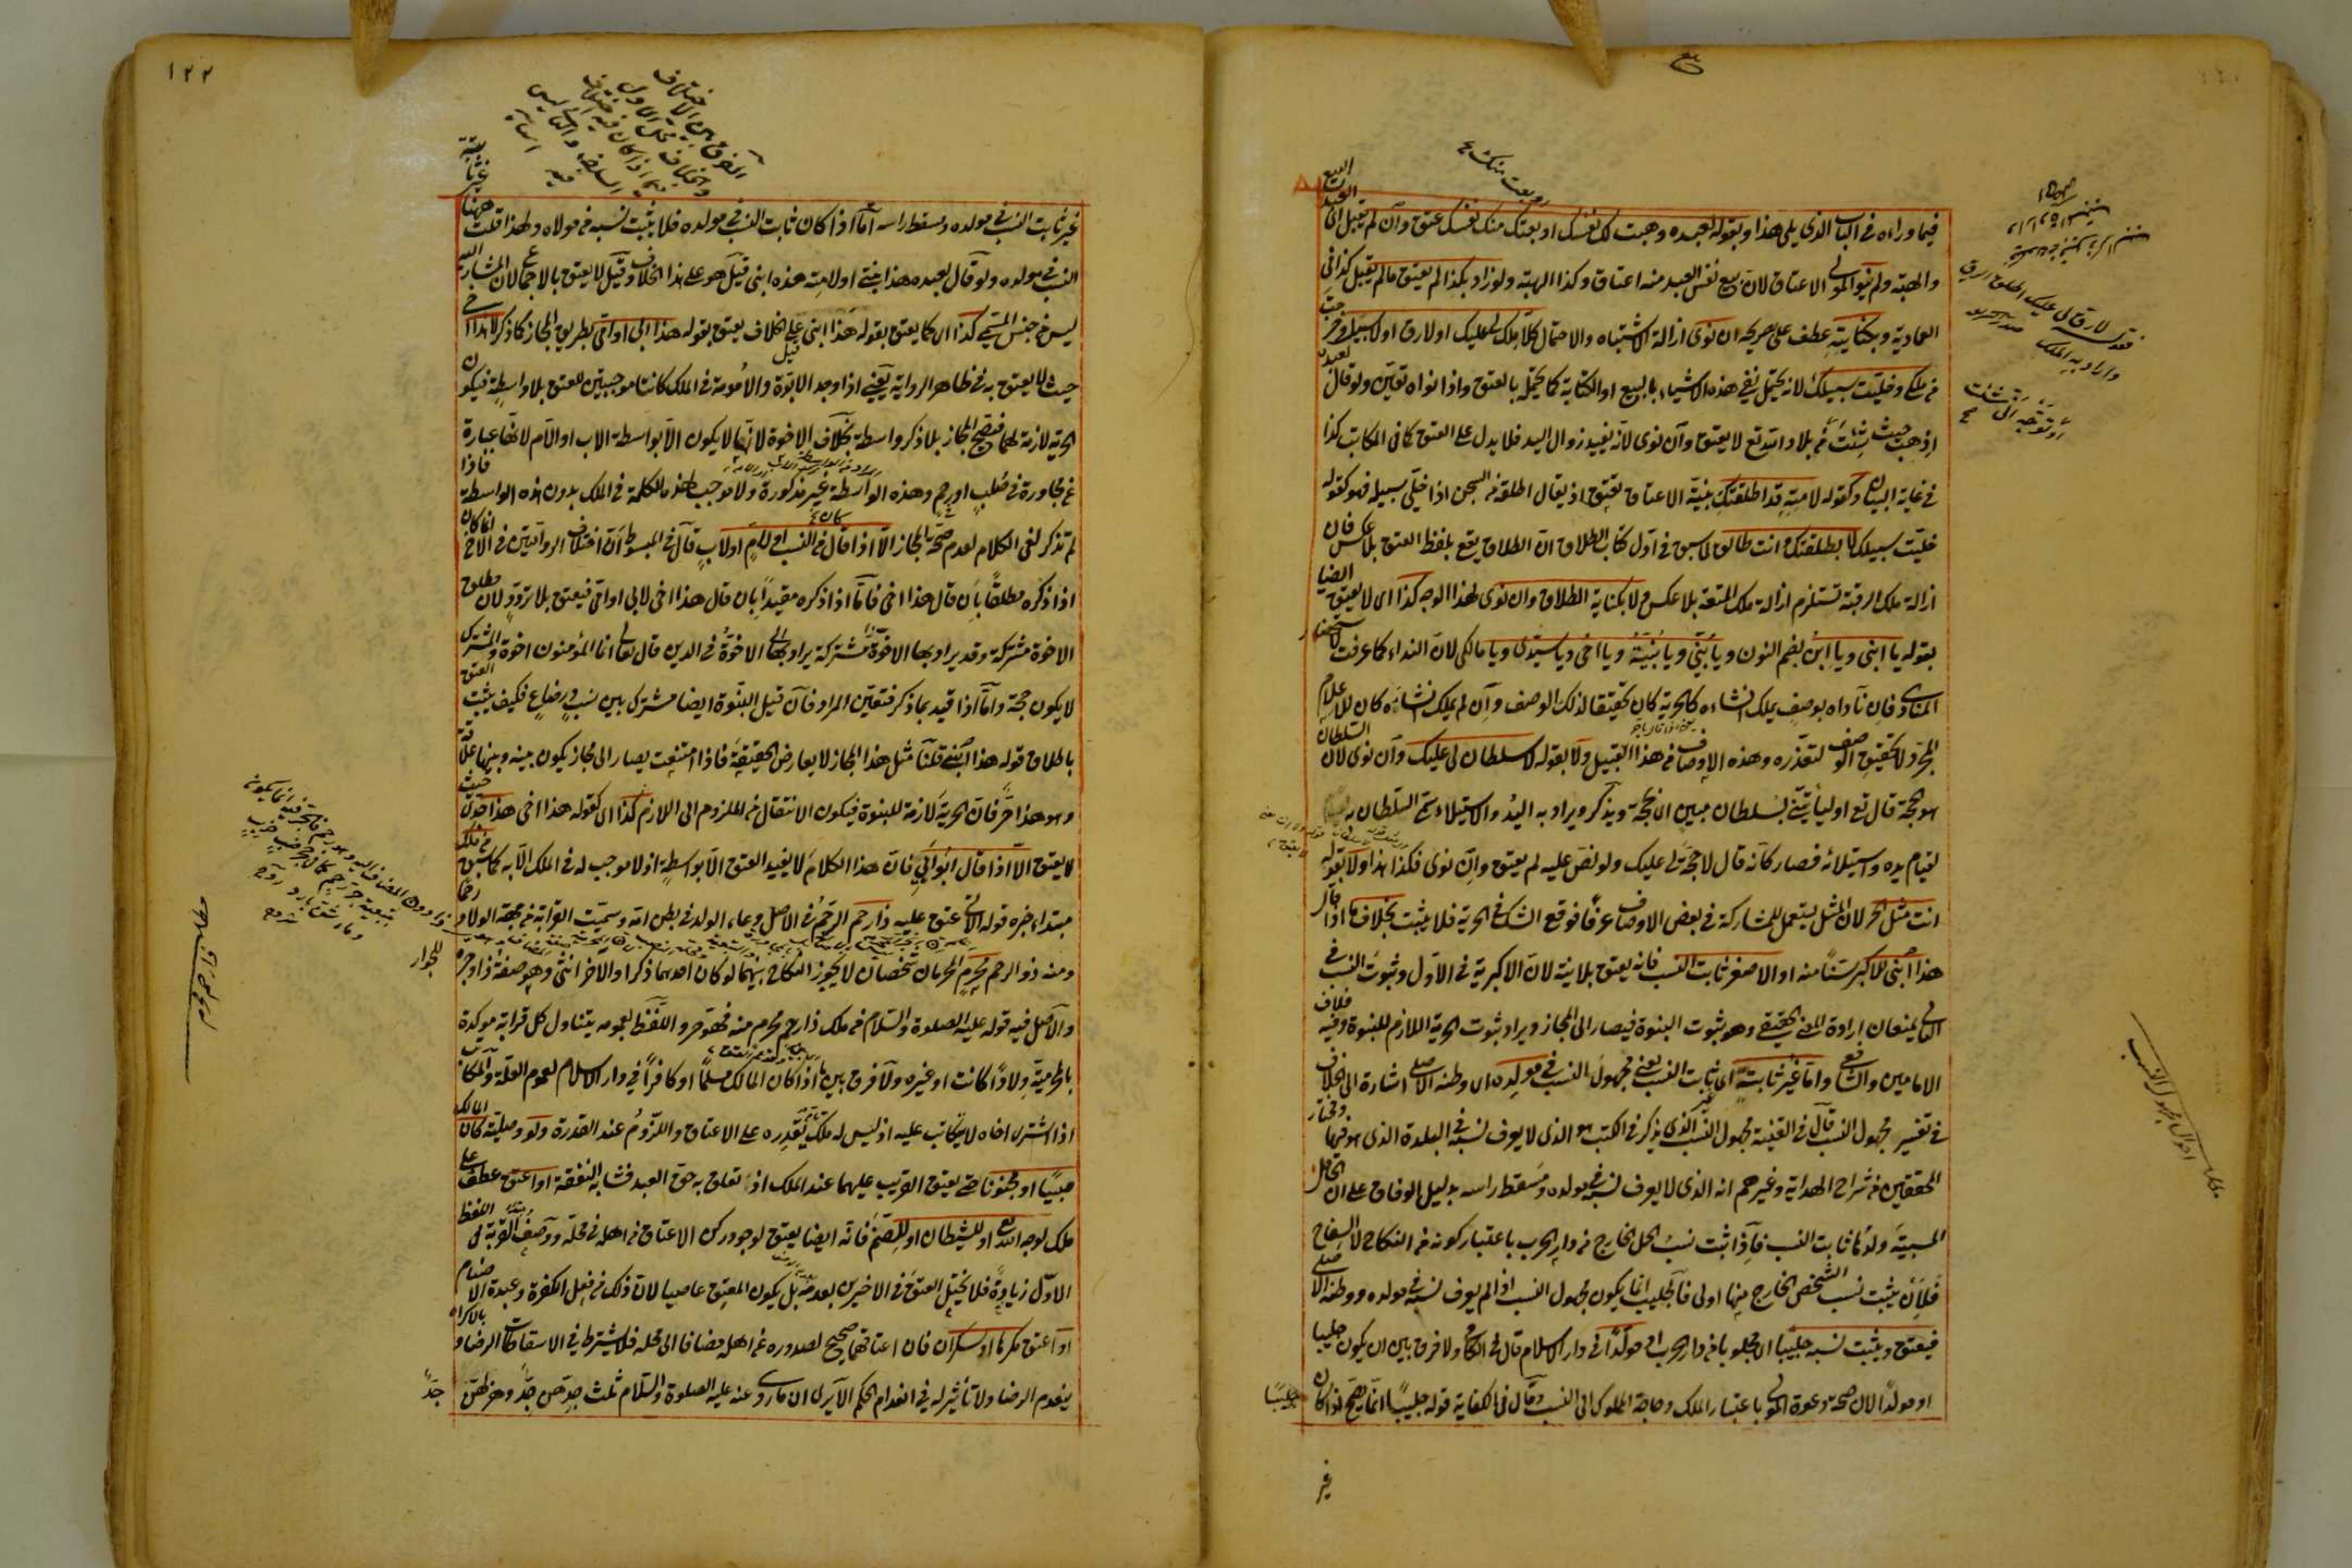 فيما وراءه في الباب الذي يلي هذا وبقوله لعبده وهبت لك نفسك او بعتك منك نفسك عتق وان لم يقبل العبد البيع
والهبة ولم ينو المولى الاعتاق لان بيع نفس العبد منه اعتاق وكذا الهبة ولو زاد بكذا لم يعتق ما لم يقبل كذا في
العمادية وبكنايته عطف على صريحه ان نوى ازالة الاشتباه والاحتمال كلا ملك لي عليك او لا رق او لا سبيل وخرجت
من ملكي وخليت سبيلك لانه يحتمل نفي هذه الاشياء بالبيع او الكتابة كما يحتمل بالعتق واذا نواه تعين ولو قال لعبده
اذهب حيث شئت من بلاد الله تع لا يعتق وان نوى لانه يفيد زوال اليد فلا يدل على العتق كما في المكاتب كذا
في غاية البيان وكقوله لامته قد اطلقتك بنية الاعتاق يعتق اذ يقال اطلقه من السجن اذا خلى سبيله فهو كقوله
خليت سبيلك لا بطلقتك وانت طالق لما سبق في اول كتاب الطلاق ان الطلاق يقع بلفظ العتق بلا عكس فان
ازالة ملك الرقبة تستلزم ازالة ملك المتعة بلا عكس ولا بكناية الطلاق وان نوى لهذا الوجه كذا اي لا يعتق ايضا
بقوله يا ابني ويا ابن بضم النون ويا بني ويا بنية ويا اخي ويا سيدي ويا مالكي لان النداء كما عرفت لاستحضار
المنادى فان ناداه بوصف يملك انشاءه كالحرية كان تحقيقا لذلك الوصف وان لم يملك انشاءه كان للاعلام
المجرد لا لتحقيق الوصف لتعذره وهذه الاوصاف من هذا القبيل ولا بقوله لا سلطان لي عليك وان نوى لان السلطان
هو حجة قال تع او ليأتيني بسلطان مبين اي بحجة ويذكر ويراد به اليد والاستيلاء سمي السلطان به
لقيام يده واستيلائه فصار كانه قال لا حجة لي عليك ولو نص عليه لم يعتق وان نوى فكذا هذا ولا بقوله
انت مثل الحر لان المثل يستعمل للمشاركة في بعض الاوصاف عرفا فوقع الشك في الحرية فلا يثبت بخلاف ما اذا قال
هذا ابني للاكبر سنا منه او الاصغر ثابت النسب فانه يعتق بلا نية لان الاكبرية في الاول وثبوت النسب في
الثاني يمنعان ارادة المعنى الحقيقي وهو ثبوت البنوة فيصار الى المجاز ويراد ثبوت الحرية اللازم للبنوة وفيه خلاف
الامامين والشافعي واما غير ثابته اي ثابت النسب يعني مجهول النسب في مولده اي وطنه الاصلي اشارة الى الخلاف
في تفسير مجهول النسب قال في القنية مجهول النسب الذي يذكر في الكتب هو الذي لا يعرف نسبه في البلدة الذي هو فيها ومختار
المحققين من شراح الهداية وغيرهم انه الذي لا يعرف نسبه في مولده ومسقط راسه بدليل الوفاق على ان الحامل
المسبية ولدها ثابت النسب فاذا ثبت نسب الحمل الخارج من دار الحرب باعتبار كونه من النكاح لا السفاح
فلان يثبت نسب الشخص الخارج منها اولى فالجليب انما يكون مجهول النسب اذا لم يعرف نسبه في مولده ووطنه الاصلي
فيعتق ويثبت نسبه جليبا اي مجلوبا من دار الحرب او مولدا في دار الاسلام قال في الكافي ولا فرق بين ان يكون جليبا
او مولدا لان صحة دعوة المولى باعتبار الملك وحاجة المملوك الى النسب وقال في الكفاية قوله جليبا انما يصح اذا كان
غير
١٢٢
غير ثابت النسب في مولده ومسقط راسه اما اذا كان ثابت النسب في مولده فلا يثبت نسبه من مولاه ولهذا قلت ههنا
النسب في مولده ولو قال لعبده هذا بنتي او لامته هذه ابني قيل هو على هذا الخلاف وقيل لا يعتق بالاجماع لان المشار اليه
ليس من جنس المسمى كذا اي كما يعتق بقوله هذا ابني على الخلاف يعتق بقوله هذا ابي او امي بطريق المجاز كما ذكر لا هذا اخي
حيث لا يعتق به في ظاهر الرواية يعني اذا وجد الابوة والامومة في الملك كانتا موجبتين للعتق بلا واسطة فيكون
الحرية لازمة لهما فيصح المجاز بلا ذكر واسطة بخلاف الاخوة لانها لا يكون الا بواسطة الاب او الام لانها عبارة
عن مجاورة في صلب او رحم وهذه الواسطة غير مذكورة ولا موجب لهذه الكلمة في الملك بدون هذه الواسطة فاذا
لم تذكر لغى الكلام لعدم صحة المجاز الا اذا قال من النسب او لام او لاب قال في المبسوط ان اختلاف الروايتين في الاخ انما كان
اذا ذكره مطلقا بان قال هذا اخي فاما اذا ذكره مقيدا بان قال هذا اخي لابي او امي فيعتق بلا تردد لان مطلق
الاخوة مشتركة وقد يراد بها الاخوة في الدين قال تعالى انما المؤمنون اخوة والمشترك
لا يكون حجة واما اذا قيد بما ذكر فتعين المراد فان قيل البنوة ايضا مشترك بين نسب ورضاع فكيف يثبت العتق
باطلاق قوله هذا ابني قلنا مثل هذا المجاز لا يعارض الحقيقة فاذا امتنعت يصار الى مجاز يكون بينه وبينها علاقة
وهو هذا حر فان الحرية لازمة للبنوة فيكون الانتقال من الملزوم الى اللازم كذا اي كقوله هذا اخي هذا جدي حيث
لا يعتق الا اذا قال ابو ابي فان هذا الكلام لا يفيد العتق الا بواسطة اذ لا موجب له في الملك الا به كما سبق من ملك
مبتداء خبره قوله الاتي عتق عليه ذا رحم الرحم في الاصل وعاء الولد في بطن امه وسميت القرابة من جهة الولاد رحما
ومنه ذو الرحم محرم المحرمان شخصان لا يجوز النكاح بينهما لو كان احدهما ذكرا والاخر انثى وهو صفة ذا وجره للجوار
والاصل فيه قوله عليه الصلوة والسلام من ملك ذا رحم محرم منه فهو حر واللفظ بعمومه يتناول كل قرابة موكدة
بالمحرمية ولادا كانت او غيره ولا فرق بين ما اذا كان المالك مسلما او كافرا في دار الاسلام لعموم العلة والمكاتب
اذا اشترى اخاه لا يتكاتب عليه اذ ليس له ملك تام يقدره على الاعتاق واللزوم عند القدرة ولو وصلية كان المالك
صبيا او مجنونا حتى يعتق القريب عليهما عند الملك اذ تعلق به حق العبد فشابه النفقة او اعتق عطف على
ملك لوجه الله تع او للشيطان او للصنم فانه ايضا يعتق لوجود ركن الاعتاق من اهله في محله ووصف القربة في اللفظ
الاول زيادة فلا يختل العتق في الاخيرين بعدمه بل يكون المعتق عاصيا لان ذلك من فعل الكفرة وعبدة الاصنام
او اعتق مكرها او سكران فان اعتاقهما صحيح لصدوره من اهله مضافا الى محله فلا يشترط في الاسقاطات الرضا وبالاكراه
ينعدم الرضا ولا تأثير له في انعدام الحكم الا يرى ان ما روي عنه عليه الصلوة والسلام ثلث جدهن جد وهزلهن جد